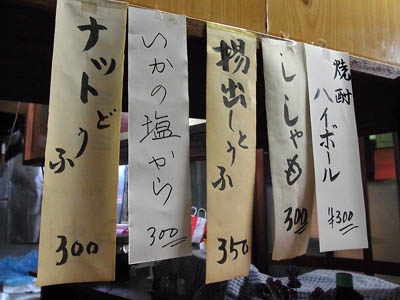 ナットどうふ
300
いかの塩から
300
揚出しとうふ
350
ししゃも
300
焼酎
ハイボール
¥300